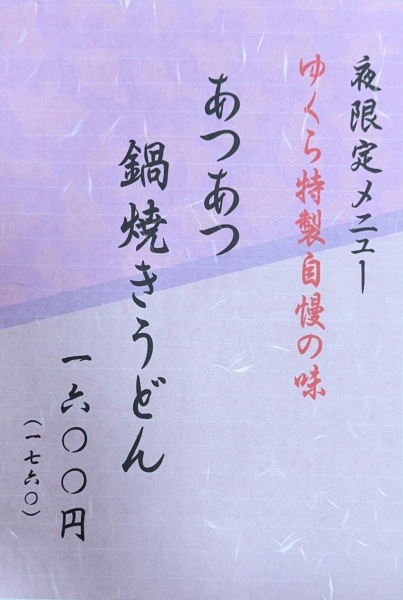 夜限定メニュー
ゆくら特製自慢の味
あつあつ
鍋焼きうどん
一六〇〇円
(一七六〇)